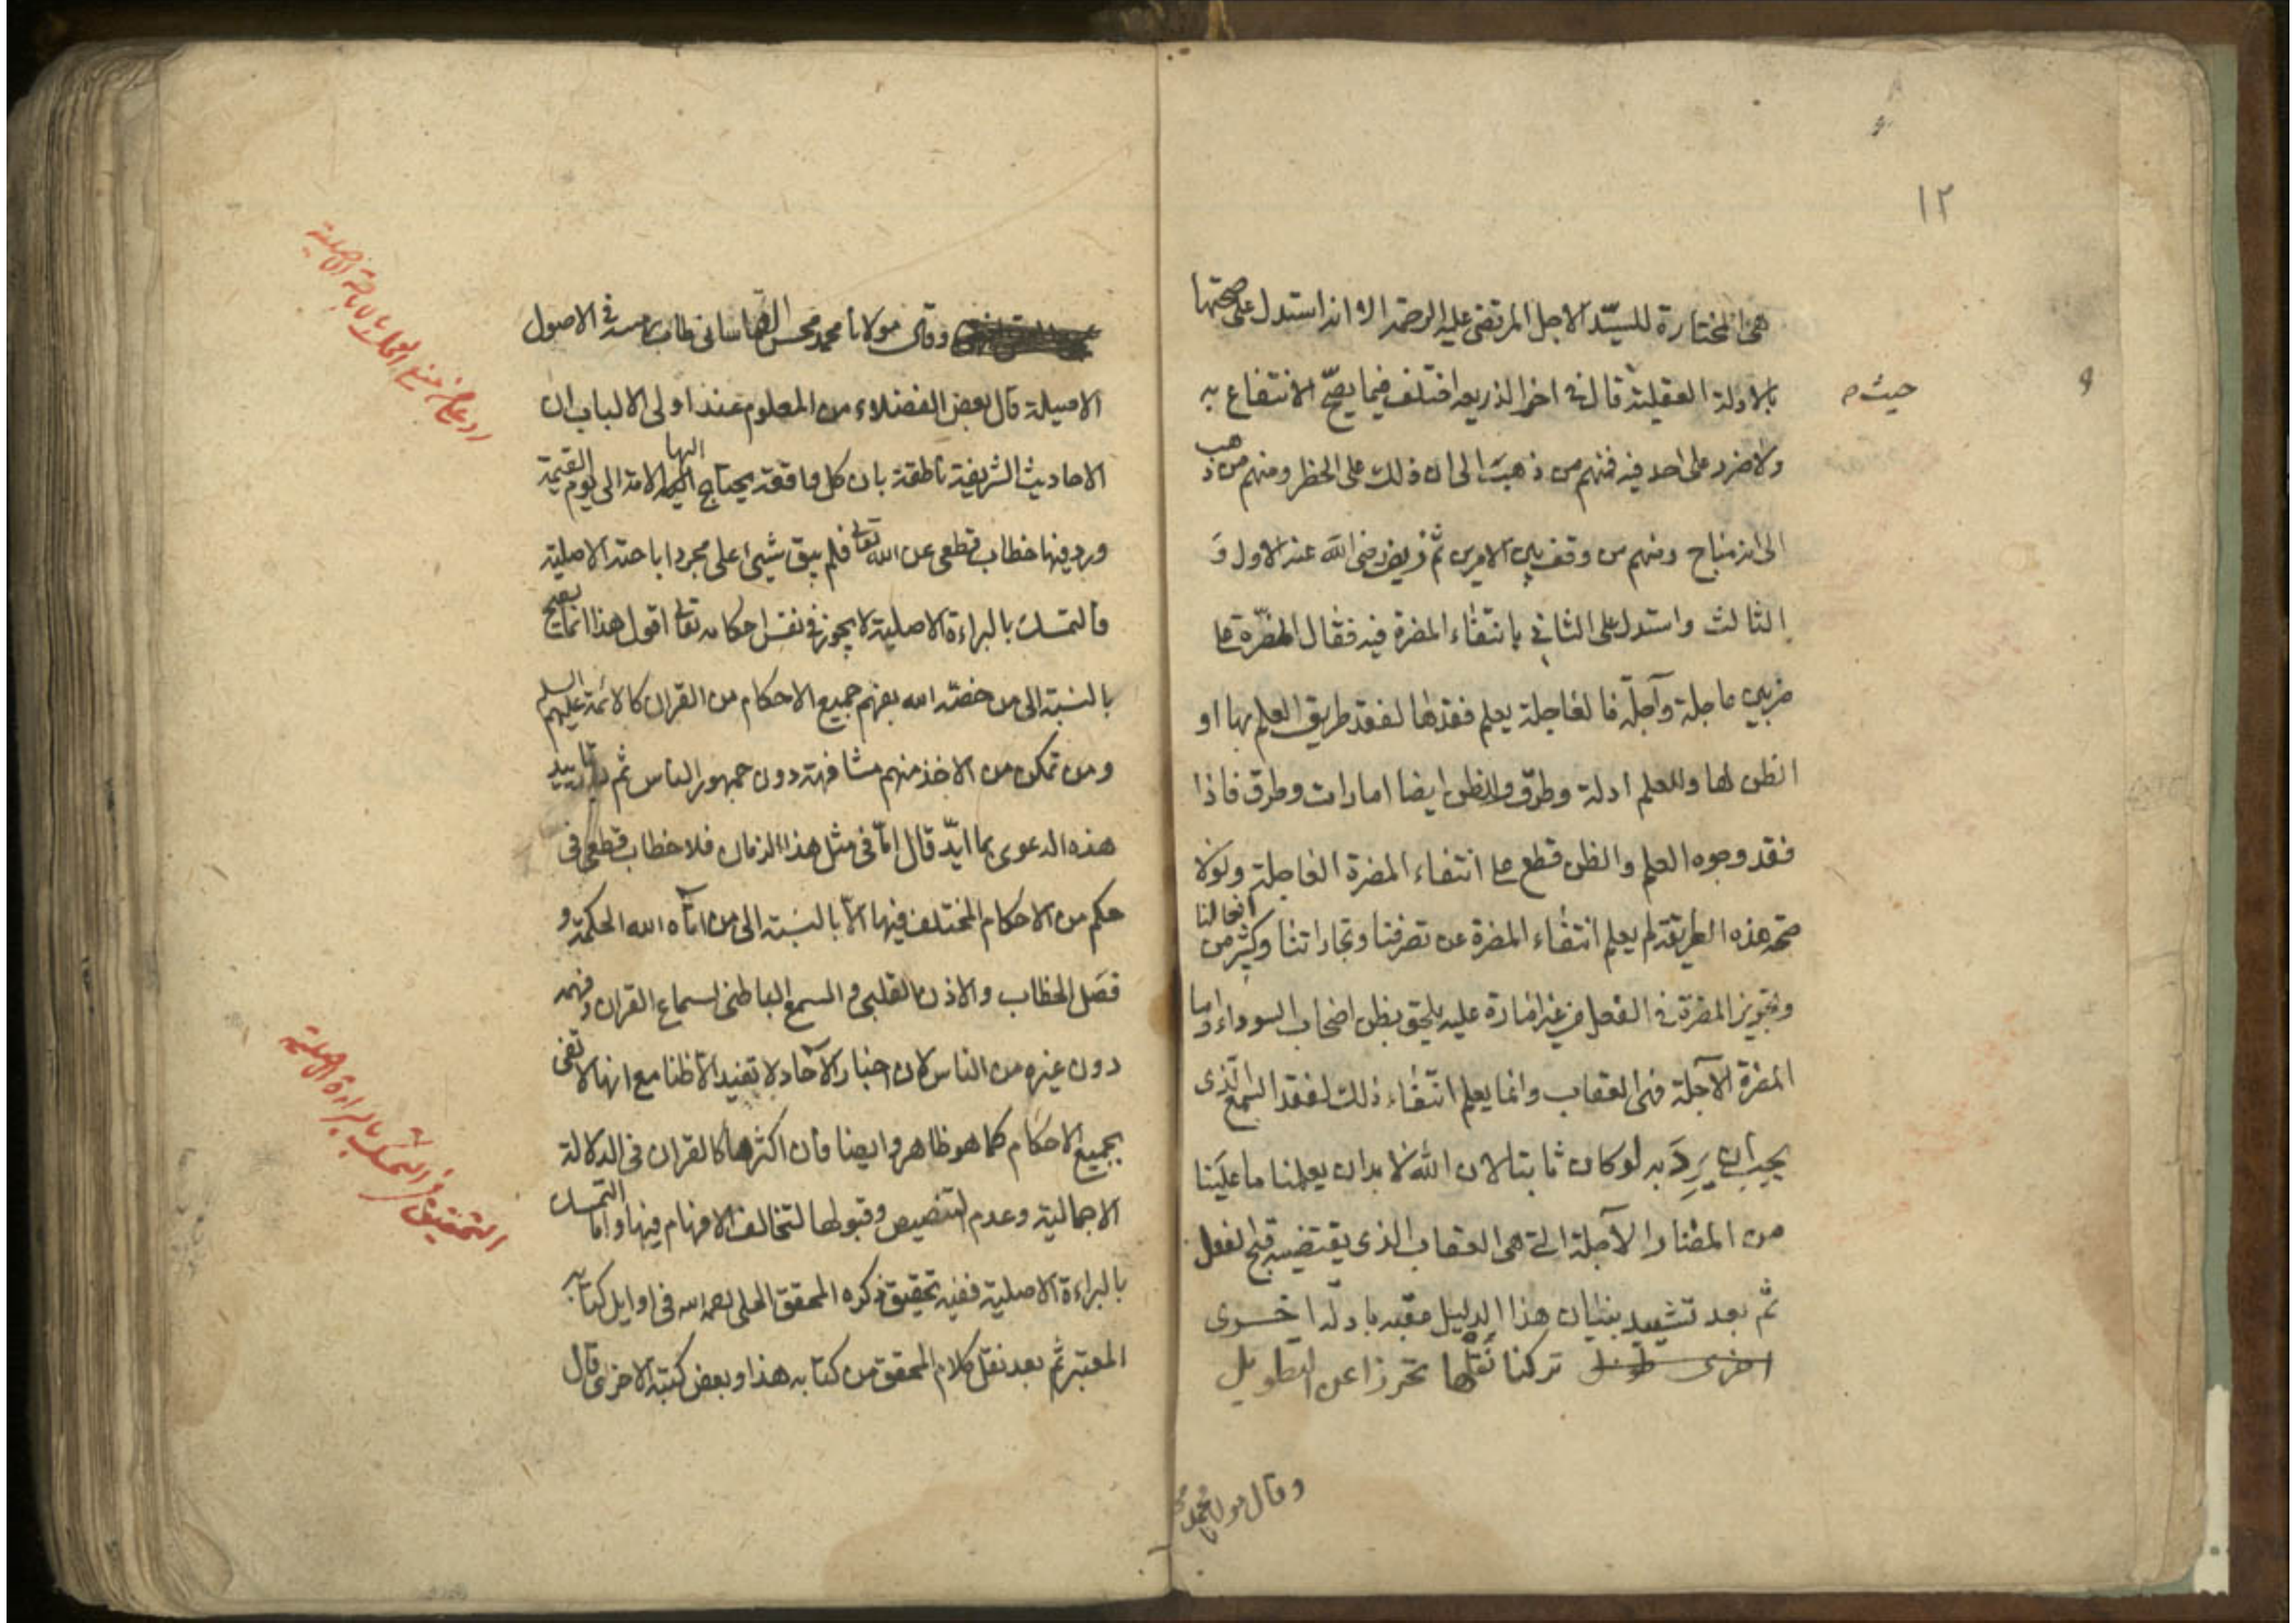 ١٢
هى المختارة للسيّد الاجل المرتضى عليه الرحمة الا انه استدل على صحتها
بالادلة العقلية قال فى اخر الذريعه اختلف فيما يصحّ الانتفاع به
حيث
ولا ضرر على احد فيه فمنهم من ذهب الى ان ذلك على الحظر ومنهم من ذهب
الى انه مباح ومنهم من وقف بين الامرين ثم زيف رضى الله عنه الاول و
الثالث واستدل على الثاني بانتفاء المضرة فيه فقال المضرّة على
ضربين عاجلة وآجلة فالعاجلة يعلم فقدها لفقد طريق العلم بها او
الظن لها وللعلم ادلة وطرق وللظن ايضا امارات وطرق فاذا
فقد وجوه العلم والظن قطع على انتفاء المضرة العاجلة ولولا
صحة هذه الطريقة لم يعلم انتفاء المضرة عن تصرفنا وتجاراتنا وكثير من افعالنا
وتجويز المضرة فى الفعل من غير امارة عليه يلحق بظن اصحاب السوداء واما
المضرة الآجلة فهى العقاب وانما يعلم انتفاء ذلك لفقد السمع الّذى
يجب ان يَرِدَ به لو كان ثابتا لان الله لا بد ان يعلمنا ما علينا
من المضار الآجلة التى هى العقاب الذى يقتضيه قبح الفعل
ثم بعد تشييد بنيان هذا الدليل عقبه بادلة اخرى
اخرى تركنا نَقْلَها تحرزا عن التطويل
وقال مولانا محمد
وقال مولانا محمد محسن القاسانى طاب رمسه فى الاصول
الاصيلة قال بعض الفضلاء من المعلوم عند اولى الالباب ان
الاحاديث الشريفة ناطقة بان كل واقعة يحتاج اليها الامة الى يوم القيمة
ورد فيها خطاب قطعى عن الله تعالى فلم يبق شيئ على مجرد اباحته الاصلية
فالتمسك بالبراءة الاصلية لا يجوز فى نفس احكامه تعالى اقول هذا انما يصح
بالنسبة الى من خصّه الله بفهم جميع الاحكام من القران كالائمة عليهم السلم
ومن تمكن من الاخذ منهم مشافهة دون جمهور الناس ثم تاييد
هذه الدعوى بما ايّد قال امّا فى مثل هذا الزمان فلا خطاب قطعى فى
حكم من الاحكام المختلف فيها الّا بالنسبة الى من اتاه الله الحكمة و
فصل الخطاب والاذن القلبى والسمع الباطنى لسماع القران وفهمه
دون غيره من الناس لان اخبار الآحاد لا تفيد الّا ظنا مع انها لا تفى
بجميع الاحكام كما هو ظاهر وايضا فان اكثرها كالقران فى الدلالة
الاجمالية وعدم التنصيص وقبولها لتخالف الافهام فيها واما التمسك
بالبراءة الاصلية ففيه تحقيق ذكره المحقق الحلى رحمه الله فى اوايل كتابه
المعتبر ثم بعد نقل كلام المحقق من كتابه هذا وبعض كتبه الاخرى قال
رد على من منع العمل بالاباحة الاصلية
التحقيق فى التمسك بالبراءة الاصلية